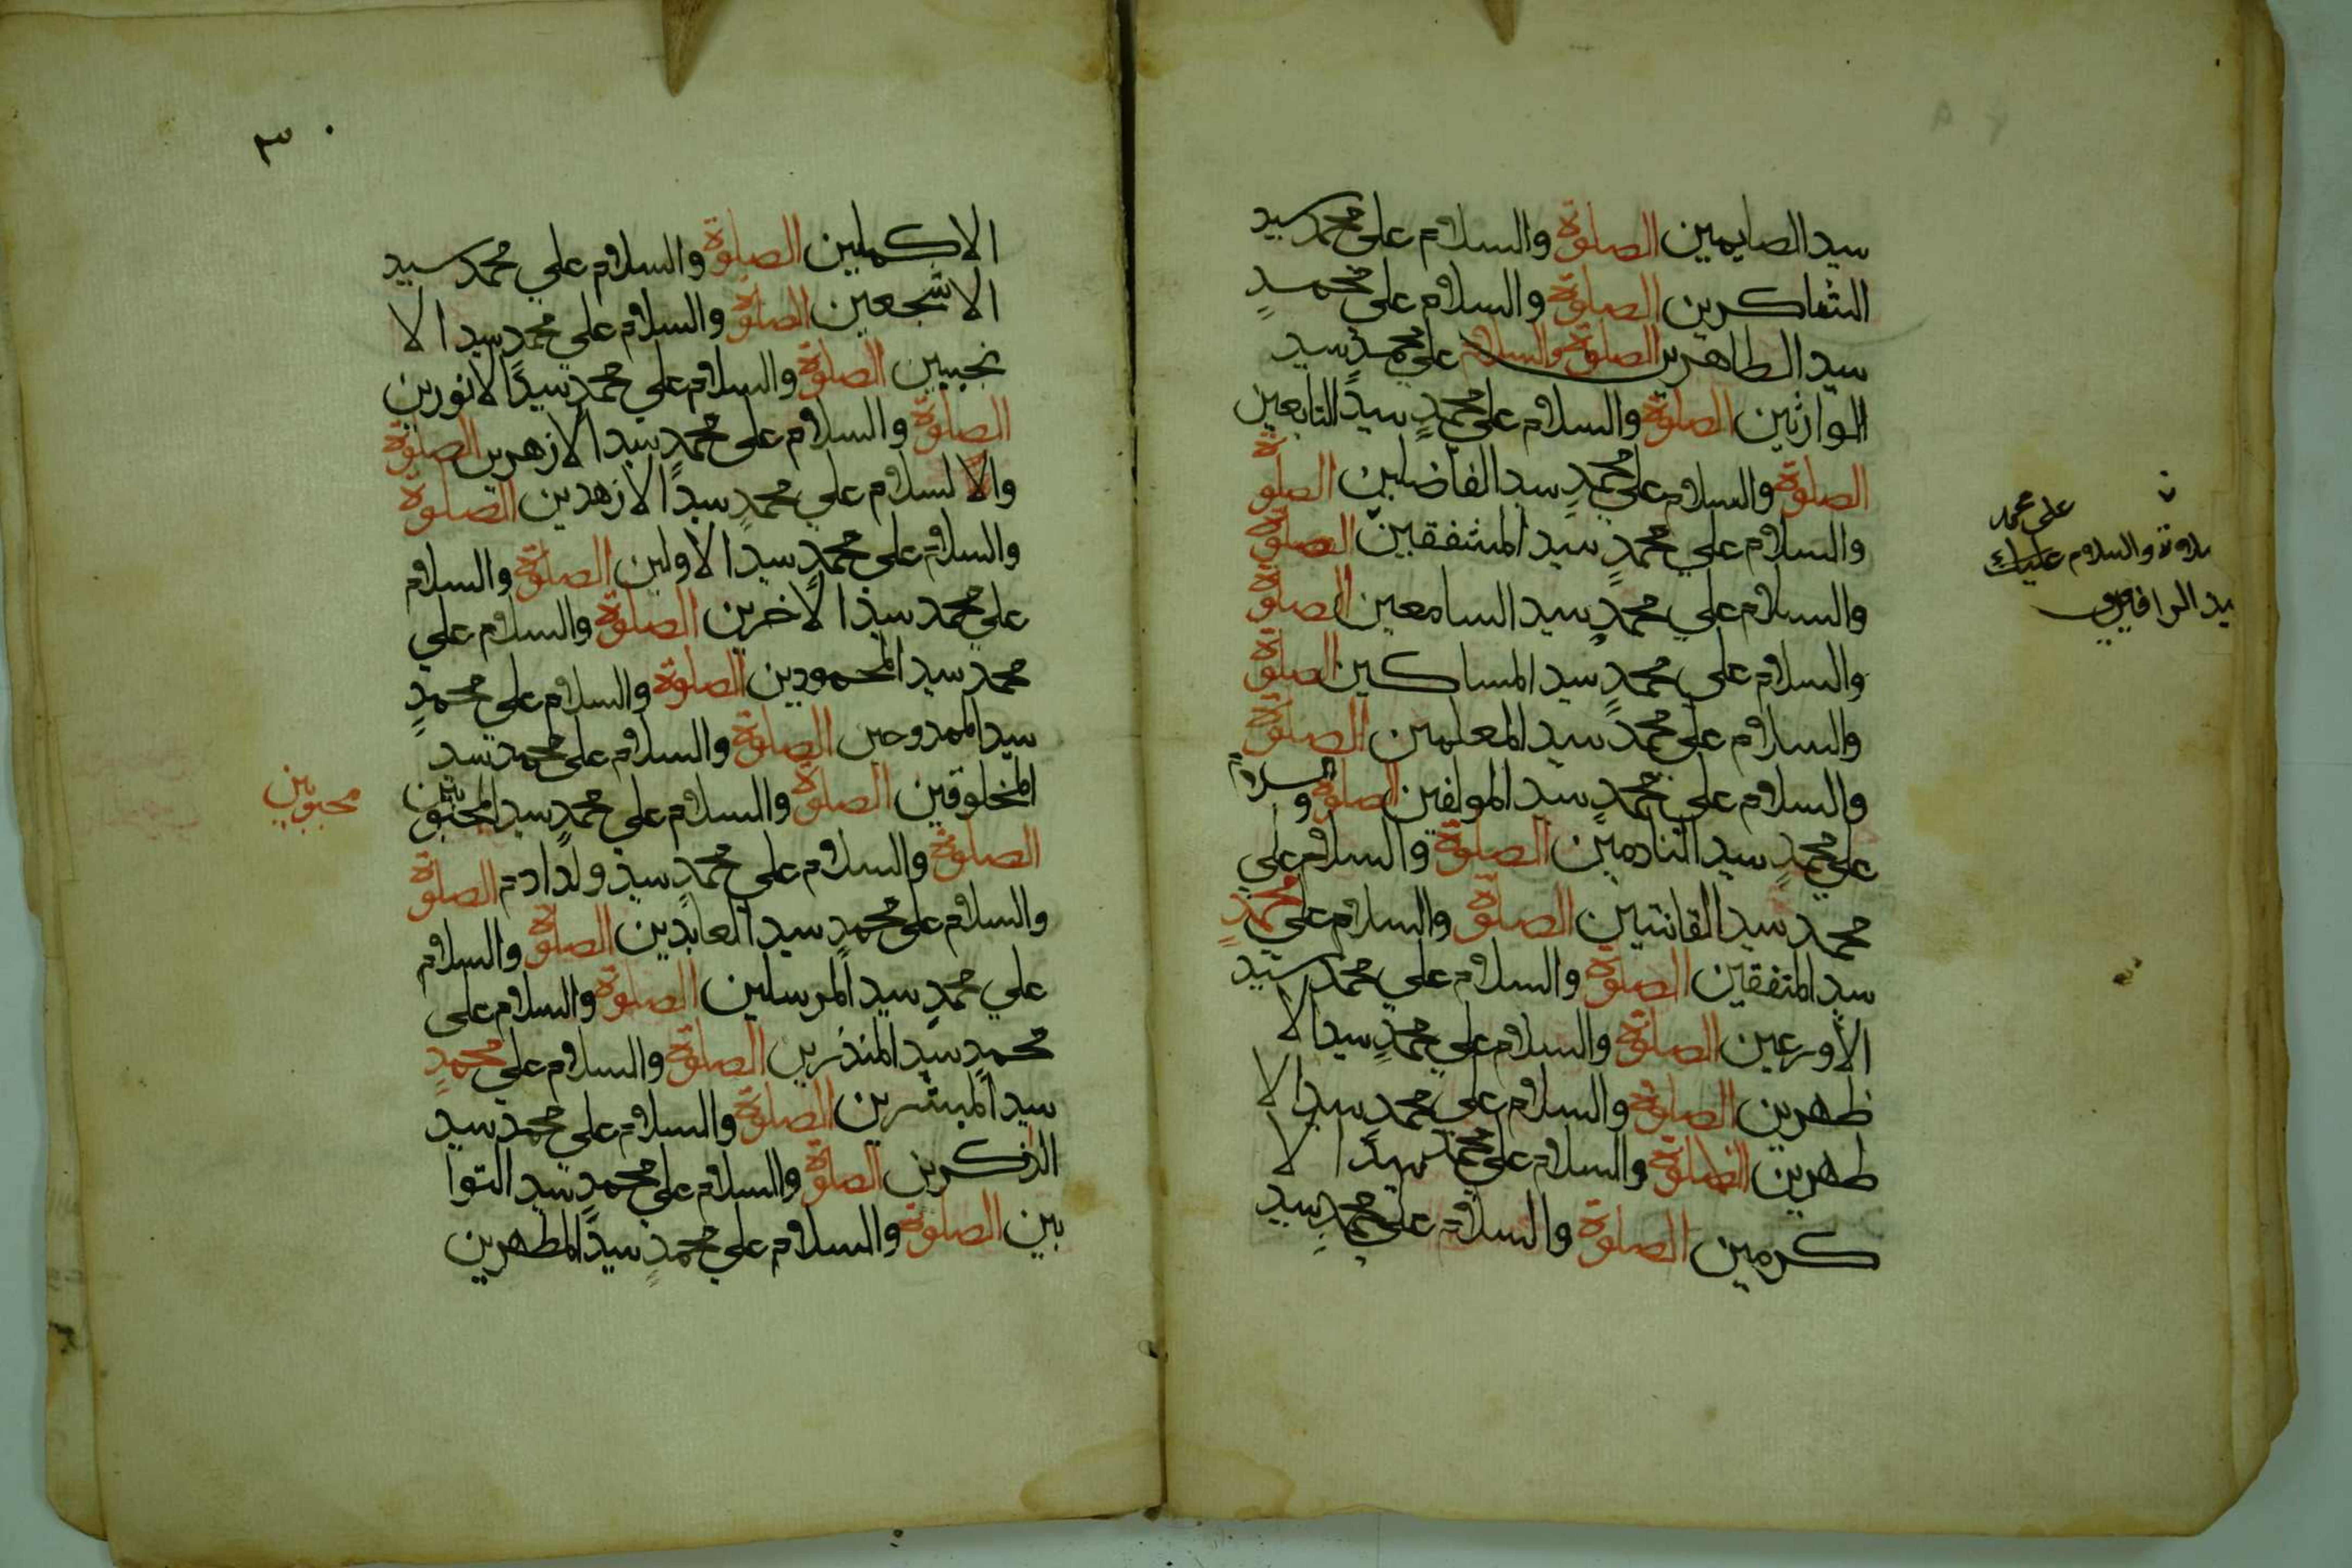 سيد الصايمين الصلوة والسلام على محمد سيد
الشاكرين الصلوة والسلام على محمدٍ
سيد الطاهرين الصلوة والسلام علي محمدٍ سيد
الوارثين الصلوة والسلام على محمدٍ سيد التابعين
الصلوة والسلام على محمدٍ سيد الفاضلين الصلوة
والسلام علي محمدٍ سيد المشفقين الصلوة
والسلام علي محمدٍ سيد السامعين الصلوة
والسلام علي محمدٍ سيد المساكين الصلوة
والسلام على محمدٍ سيد المعلمين الصلوة
والسلام علي محمدٍ سيد المولفين الصلوة والسلام
علي محمدٍ سيد النادمين الصلوة والسلام علي
محمد سيد القانتين الصلوة والسلام على محمدٍ
سيد المتفقين الصلوة والسلام علي محمد سيد
الأورعين الصلوة والسلام علي محمدٍ سيد الا
ظهرين الصلوة والسلام علي محمدٍ سيد الا
طهرين الصلوة والسلام علي محمد سيد الا
كرمين الصلوة والسلام علي محمدٍ سيد
على محمد
والسلام عليك
يد الرافعين
٣٠
الاكملين الصلوة والسلام علي محمد سيد
الاشجعين الصلوة والسلام علي محمدٍ سيد الا
نجبين الصلوة والسلام علي محمدٍ سيد الانورين
الصلوة والسلام على محمدٍ سيد الازهرين الصلوة
والا لسلام علي محمدٍ سيد الازهدين الصلوة
والسلام على محمدٍ سيد الاولين الصلوة والسلام
علي محمد سيد الاخرين الصلوة والسلام علي
محمد سيد المحمودين الصلوة والسلام علي محمدٍ
سيد الممدوحين الصلوة والسلام على محمد سيد
المخلوقين الصلوة والسلام علي محمدٍ سيد المحبوبين
محبوبين
الصلوة والسلام علي محمدٍ سيد ولد ادم الصلوة
والسلام علي محمدٍ سيد العابدين الصلوة والسلام
علي محمدٍ سيد المرسلين الصلوة والسلام على
محمدٍ سيد المنذرين الصلوة والسلام علي محمدٍ
سيد المبشرين الصلوة والسلام علي محمد سيد
الذكرين الصلوة والسلام علي محمدٍ سيد التوا
بين الصلوة والسلام علي محمدٍ سيد المطهرين